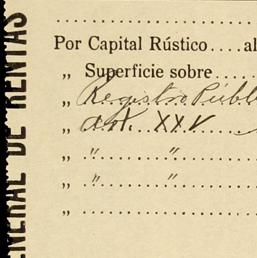 Por Capital Rústico.... al
„ Superficie sobre .....
„ Registro Públ
„ Art. XXV
„ " "
„ " "
„
NERAL DE RENTAS